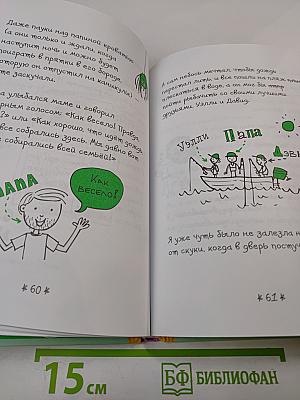 Даже пауки над папиной кроватью
(а они только и ждали, когда
наступит ночь и можно будет
поиграть в прятки в его бороде,
которую он отпустил на каникулы)
заскучали.
улыбался маме и говорил
голосом: «Как весело! Правда
или «Как хорошо, что идёт дождь,
все собрались здесь. Мы давно вот
собирались всей семьёй!»
ПАПА
КАК
ВЕСЕЛО!
* 60 *
А сам небось мечтал, чтобы дождь
перестал лить и все пошли на пляж
плескаться в воде, а он мог бы
пойти рыбачить со своими лучшими
друзьями Уэлли и Дэвид.
УЭЛЛИ
ПАПА
Я уже чуть было не залезла
от скуки, когда в дверь
* 61 *
15 см
БФ БИБЛИОФАН